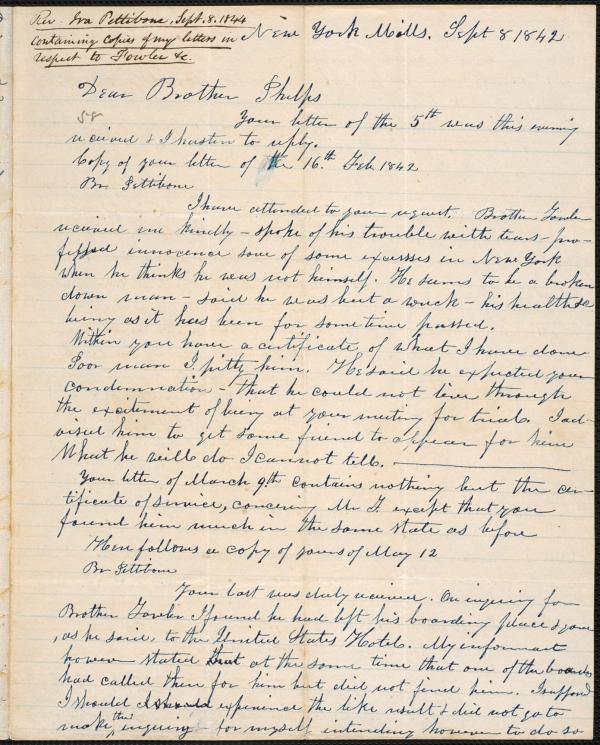 Rev. Ira Pettibone, Sept. 8. 1844
containing copies of my letters in
respect to Fowler &c.
New York Mills. Sept 8 1842
Dear Brother Phelps
58
Your letter of the 5th was this evening
received & I hasten to reply.
Copy of your letter of the 16th. Feb. 1842
Br. Pettibone
I have attended to your request. Brother Fowler
received me kindly - spoke of his trouble with tears - pro-
fessed innocence save of some excesses in New York
when he thinks he was not himself. He seems to be a broken
down man - said he was but a wreck - his health &c
being as it has been for some time passed.
Within you have a certificate of what I have done
Poor man I pitty him. He said he expected your
condemnation - that he could not live through
the excitement of being at your meeting for trial. I ad-
vised him to get some friend to appear for him
What he will do I cannot tell.
Your letter of March 9th contains nothing but the cer-
tificate of service, concerning Mr F. except that you
found him much in the same state as before
Here follows a copy of yours of May 12
Br. Pettibone
Your last was duly received. On inquiring for
Brother Fowler I found he had left his boarding place & gone
, as he said, to the United States Hotel. My informant
however stated that at the same time that one of the boarders
had called there for him but did not find him. I supposed
I should experience the like result & did not go to
make the inquiry for myself intending however to do so